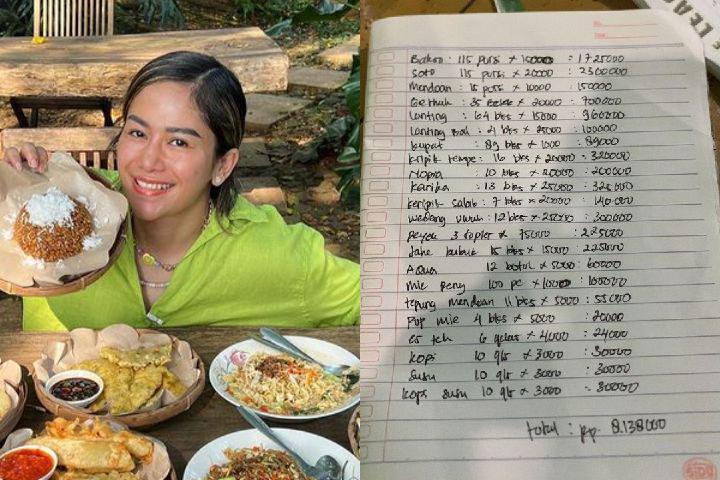 LEA
Bakso : 115 porsi x 15000 : 1725000
Soto 115 porsi x 20000 : 2300000
Mendoan : 15 porsi x 10000 : 150000
Gethuk : 35 x 20000 : 700000
Lanting : 64 bks x 15000 : 960000
Lanting 4 bks x 25000 : 100000
Kupat : 89 bks x 1000 : 89000
Kripik tempe : 16 bks x 20000 : 320000
Nopia 10 bks x 20000 : 200000
Karika : 13 bks x 25000 : 325000
Keripik salak : 7 bks x 20000 : 140000
Wedang uwuh : 12 bks x 25000 : 300000
Peyek 3 toples x 75000 : 225000
Jahe bubuk 15 bks x 15000 : 225000
Aqua 12 botol x 5000 : 60000
Mie 100 pc x 1000 : 100000
tepung mendoan 11 bks x 5000 : 55000
Pop mie 4 bks x 5000 : 20000
es teh 6 gelas x 4000 : 24000
Kopi 10 gls x 3000 : 30000
Susu 10 gls x 3000 : 30000
Kopi susu 10 gls x 3000 : 30000
total : Rp. 8.138000
SIDU